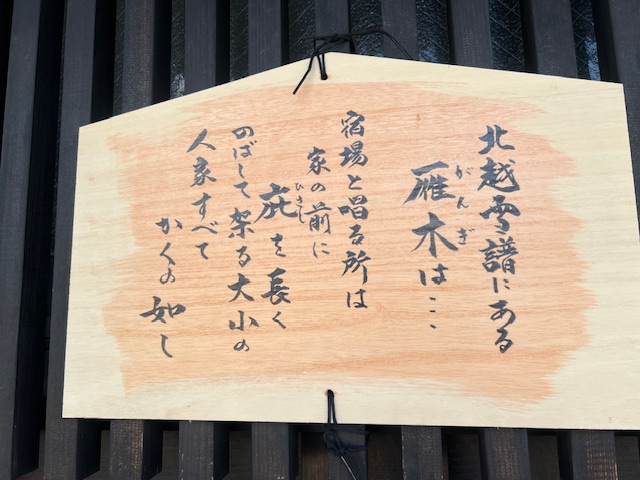 北越雪譜にある
雁木は…
がんぎ
宿場と唱る所は
家の前に
庇を長く
ひさし
のばして架る大小の
人家すべて
かくの如し